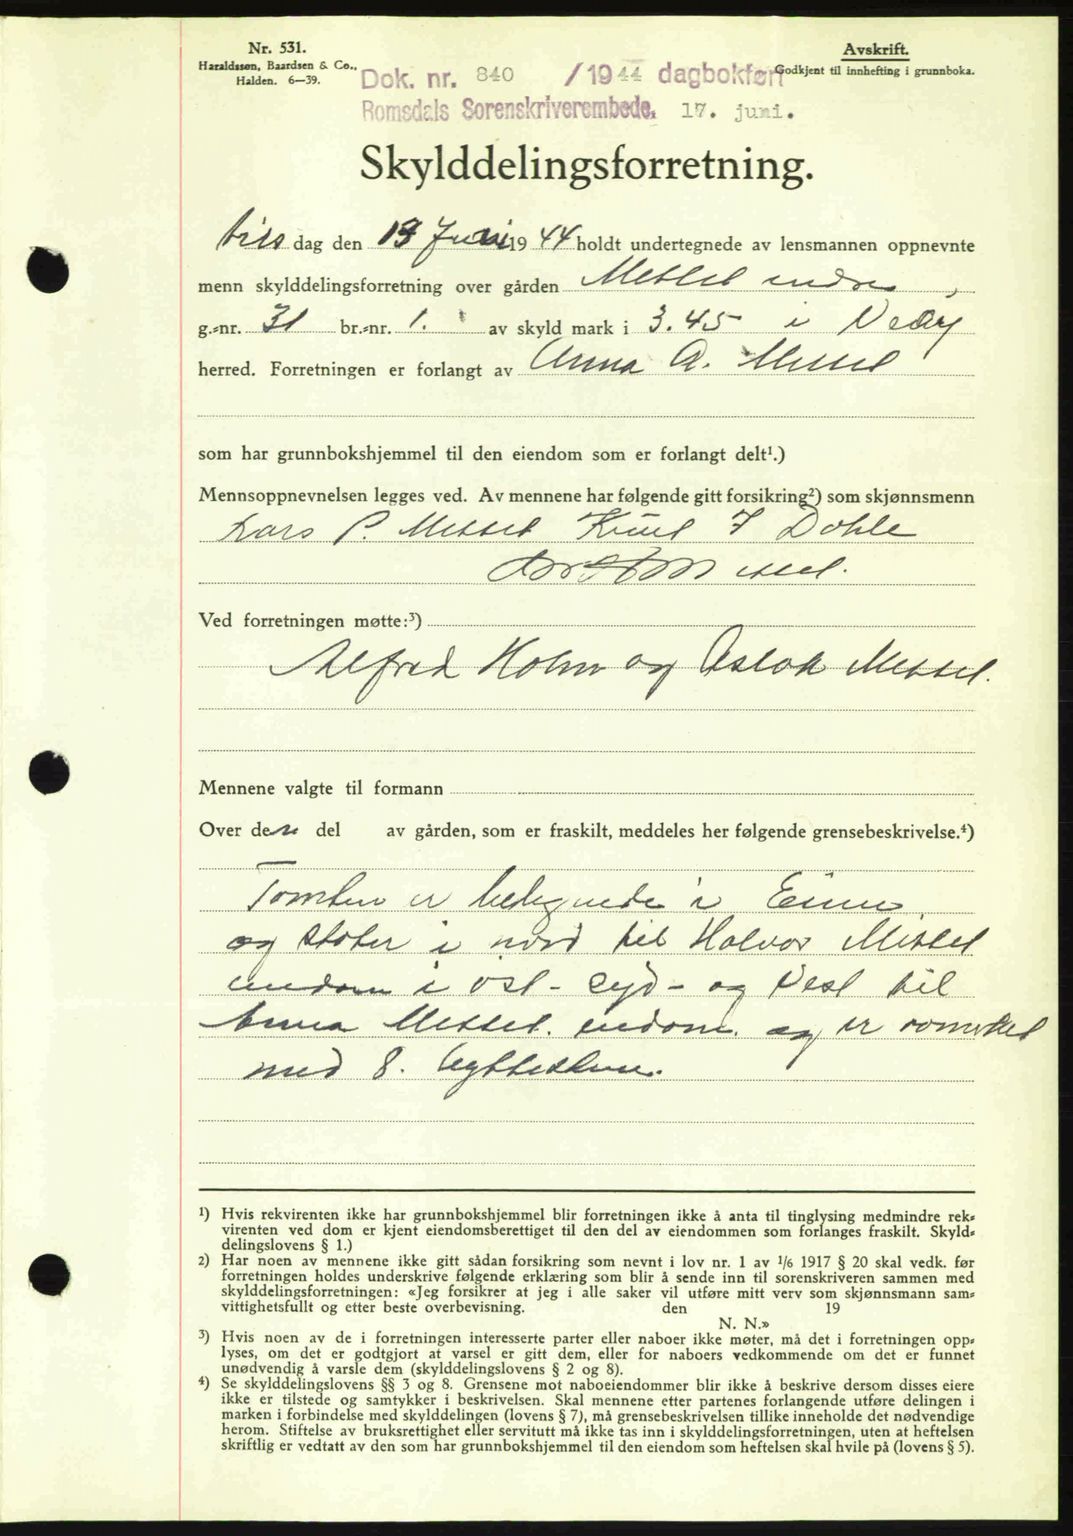 Nr. 531.
Haraldssøn, Baardsen & Co.,
Halden. 6—39.
Avskrift.
Godkjent til innhefting i grunnboka.
Dok. nr. 840 /1944 dagbokført
Romsdals Sorenskriverembede, 17. juni.
Skylddelingsforretning.
dag den 13 1944 holdt undertegnede av lensmannen oppnevnte
menn skylddelingsforretning over gården
g.=nr. 31 br.=nr. 1. av skyld mark i 3.45 i Veøy
herred. Forretningen er forlangt av Anna A.
som har grunnbokshjemmel til den eiendom som er forlangt delt¹.)
Mennsoppnevnelsen legges ved. Av mennene har følgende gitt forsikring²) som skjønnsmenn
Lars P. Messel Knut
Ved forretningen møtte:³)
Alfred Holm og Aslak Messel.
Mennene valgte til formann
Over den del av gården, som er fraskilt, meddeles her følgende grensebeskrivelse.⁴)
Tomten er i
og støter i nord til Halvor Messel
i øst - syd - og Vest til
Anna Messel. og er
med 8.
¹) Hvis rekvirenten ikke har grunnbokshjemmel blir forretningen ikke å anta til tinglysing medmindre rek=
virenten ved dom er kjent eiendomsberettiget til den del av eiendommen som forlanges fraskilt. Skyld=
delingslovens § 1.)
²) Har noen av mennene ikke gitt sådan forsikring som nevnt i lov nr. 1 av ¹/6 1917 § 20 skal vedk. før
forretningen holdes underskrive følgende erklæring som blir å sende inn til sorenskriveren sammen med
skylddelingsforretningen: «Jeg forsikrer at jeg i alle saker vil utføre mitt verv som skjønnsmann sam=
vittighetsfullt og etter beste overbevisning. den 19
N. N.»
³) Hvis noen av de i forretningen interesserte parter eller naboer ikke møter, må det i forretningen opp=
lyses, om det er godtgjort at varsel er gitt dem, eller for naboers vedkommende om det er funnet
unødvendig å varsle dem (skylddelingslovens § 2 og 8).
⁴) Se skylddelingslovens §§ 3 og 8. Grensene mot naboeiendommer blir ikke å beskrive dersom disses eiere
ikke er tilstede og samtykker i beskrivelsen. Skal mennene etter partenes forlangende utføre delingen i
marken i forbindelse med skylddelingen (lovens § 7), må grensebeskrivelsen tillike inneholde det nødvendige
herom. Stiftelse av bruksrettighet eller servitutt må ikke tas inn i skylddelingsforretningen, uten at heftelsen
skriftlig er vedtatt av den som har grunnbokshjemmel til den eiendom som heftelsen skal hvile på (lovens § 5).